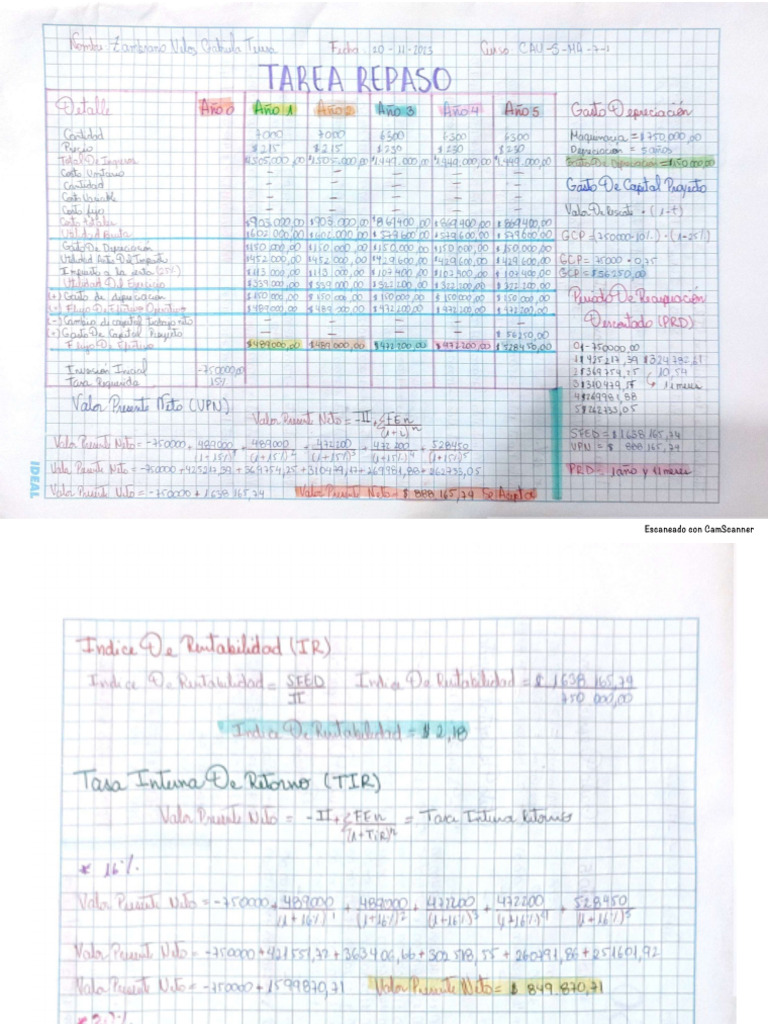 Nombre: Zambrano Velez Gabriela Fecha: 20-11-2023 Curso: CAU-S-MA-7-1
TAREA REPASO
Detalle Año 0 Año 1 Año 2 Año 3 Año 4 Año 5 Gasto Depreciación
Cantidad 7000 7000 6300 6300 6300 Maquinaria = $750.000,00
Precio $215 $215 $230 $230 $230 Depreciacion = 5 años
Total De Ingresos 1.505.000,00 $1.505.000,00 $1.449.000,00 $1.449.000,00 $1.449.000,00 Gasto De Depreciacion = $150.000,00
Costo Unitario - - - - -
Cantidad - - - - - Gasto De Capital Proyecto
Costo Variable - - - - -
Costo fijo - - - - - Valor De Rescate · (1-t)
Costo Totales $903.000,00 $903.000,00 $869.400,00 $869.400,00 $869.400,00
Utilidad Bruta $602.000,00 $602.000,00 $579.600,00 $579.600,00 $579.600,00 GCP = (750000·10%) · (1-25%)
Gasto De Depreciacion $150.000,00 $150.000,00 $150.000,00 $150.000,00 $150.000,00
Utilidad Antes Del Impuesto $452.000,00 $452.000,00 $429.600,00 $429.600,00 $429.600,00 GCP = 75000 · 0,75
Impuesto a la renta (25%) $113.000,00 $113.000,00 $107.400,00 $107.400,00 $107.400,00 GCP = $56250,00
Utilidad Del Ejercicio $339.000,00 $339.000,00 $322.200,00 $322.200,00 $322.200,00
(+) Gasto de depreciacion $150.000,00 $150.000,00 $150.000,00 $150.000,00 $150.000,00 Periodo De Recuperación
(=) Flujo De Efectivo Operativo $489.000,00 $489.000,00 $472.200,00 $472.200,00 $472.200,00
(-) Cambio de capital trabajo neto - - - - - Descontado (PRD)
(+) Gasto De Capital Proyecto - - - - $56250,00
Flujo De Efectivo $489000,00 $489000,00 $472200,00 $472200,00 $528450,00 0|-750000,00
1|425217,39 $324782,61
Inversión Inicial -750000,00 2|369754,25 10,54
Tasa Requerida 15% 3|310479,17 11 meses
Valor Presente Neto (VPN) 4|269981,88
5|262733,05
Valor Presente Neto = -II + Σ FEn / (1+i)^n
Valor Presente Neto = -750000 + 489000/(1+15%)^1 + 489000/(1+15%)^2 + 472200/(1+15%)^3 + 472200/(1+15%)^4 + 528450/(1+15%)^5 SFED = $1638165,74
VPN = $ 888165,74
Valor Presente Neto = -750000 + 425217,39 + 369754,25 + 310479,17 + 269981,88 + 262733,05 PRD = 1 año y 11 meses
Valor Presente Neto = -750000 + 1638165,74 Valor Presente Neto = $ 888165,74 Se Acepta
IDEAL
Escaneado con CamScanner
Indice De Rentabilidad (IR)
Indice De Rentabilidad = SFED / II Indice De Rentabilidad = $ 1638165,74 / 750000,00
Indice De Rentabilidad = $ 2,18
Tasa Interna De Retorno (TIR)
Valor Presente Neto = -II + Σ FEn / (1+TIR)^n = Tasa Interna Retorno
* 16%
Valor Presente Neto = -750000 + 489000/(1+16%)^1 + 489000/(1+16%)^2 + 472200/(1+16%)^3 + 472200/(1+16%)^4 + 528450/(1+16%)^5
Valor Presente Neto = -750000 + 421551,72 + 363406,66 + 302518,55 + 260791,86 + 251601,92
Valor Presente Neto = -750000 + 1599870,71 Valor Presente Neto = $ 849.870,71